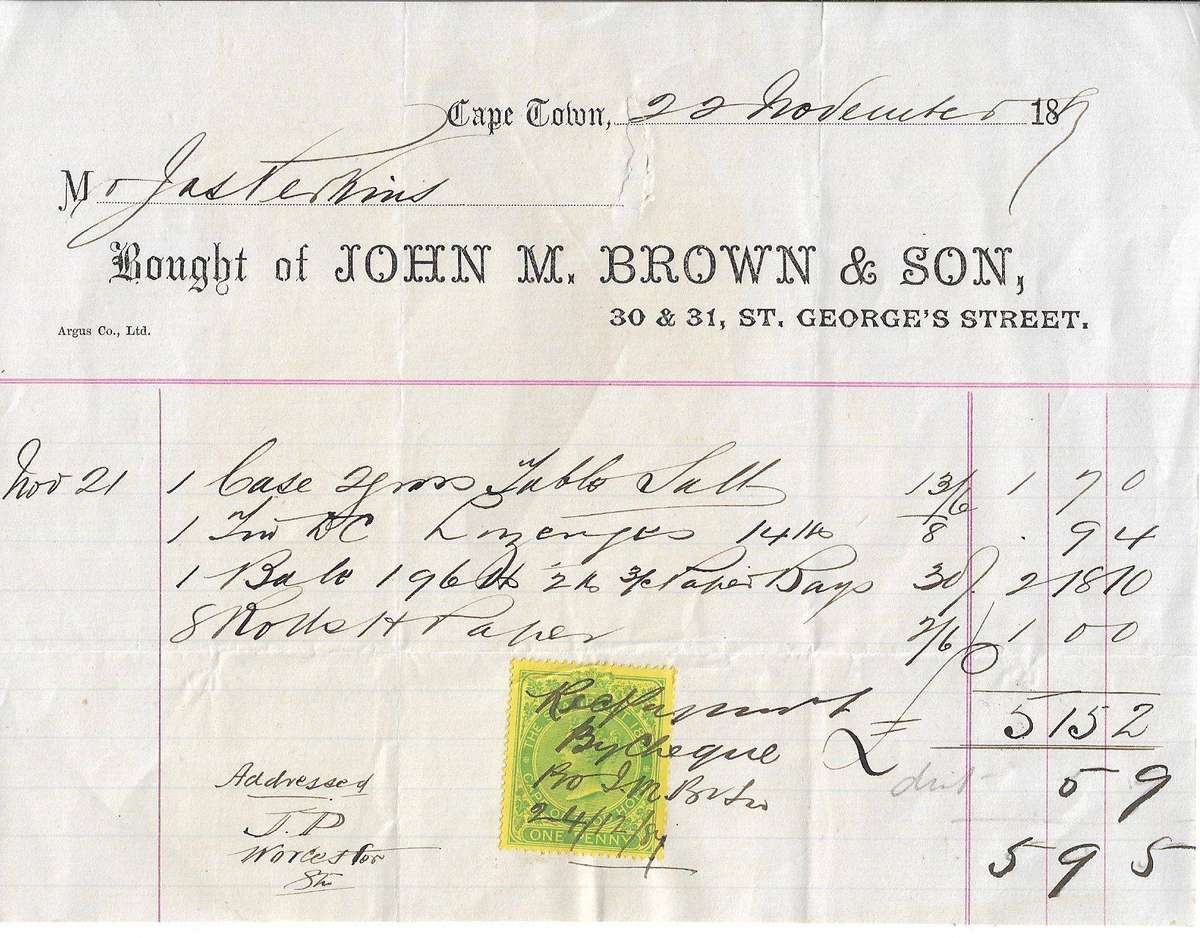 Cape Town, 22 November 188
Mr Jas Perkins
Bought of JOHN M. BROWN & SON,
30 & 31, ST. GEORGE'S STREET.
Argus Co., Ltd.
Nov 21 1 Case 2 gross Table Salt 13/6 1 7 0
1 Tin DC Lozenges 14 lbs 8 . 9 4
1 Bale 196 lbs 2 lb Paper Bags 30/. 2 18 10
8 Rolls H Paper 2/6 1 0 0
£ 5 15 2
Rec Payment
By Cheque
Pro J. M. B & Son
24/12/87
THE
GOOD HOPE
ONE PENNY
5 9
5 9 5
Addressed
J.P
Worcester
Stn